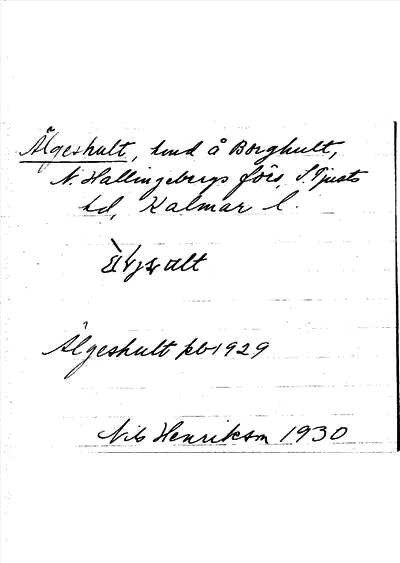 Älgeshult, hmd å Borghult,
N. Hallingebergs förs, S. Tjusts
hd, Kalmar l.
Älgeshult kb 1929
Nils Henrikson 1930